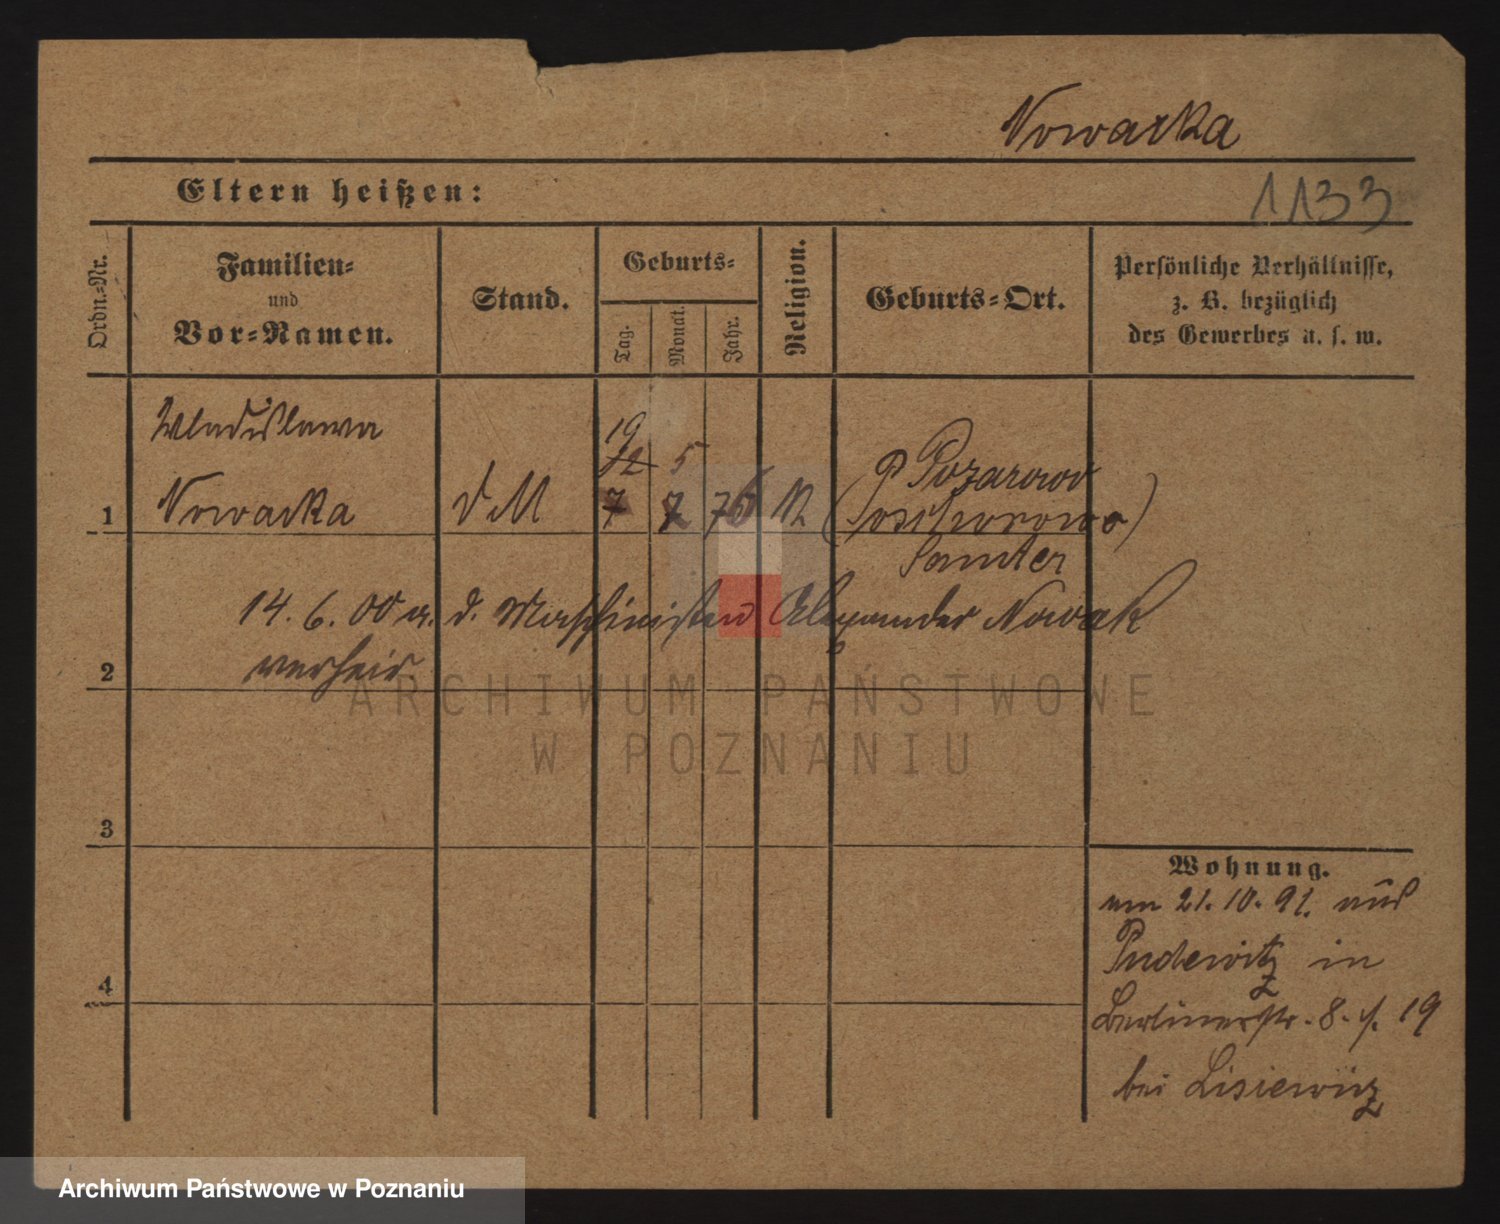 Nowacka
Eltern heißen:
1133
Ordn.-Nr.
Familien-
und
Vor-Namen.
Stand.
Geburts-
Tag.
Monat.
Jahr.
Religion.
Geburts-Ort.
Persönliche Verhältnisse,
z. B. bezüglich
des Gewerbes u. s. w.
Wladislawa
19
12 5
1 Nowacka d M 7 2 76 K
Pozarowo
Samter
14. 6. 00 a. d. Maschinisten Alexander Nowak
2 verheir
ARCHIWUM PAŃSTWOWE
W POZNANIU
3
Wohnung.
am 21. 10. 91. aus
Pudewitz in
4
Berlinerstr. 8. 19
bei Lisiewicz
Archiwum Państwowe w Poznaniu